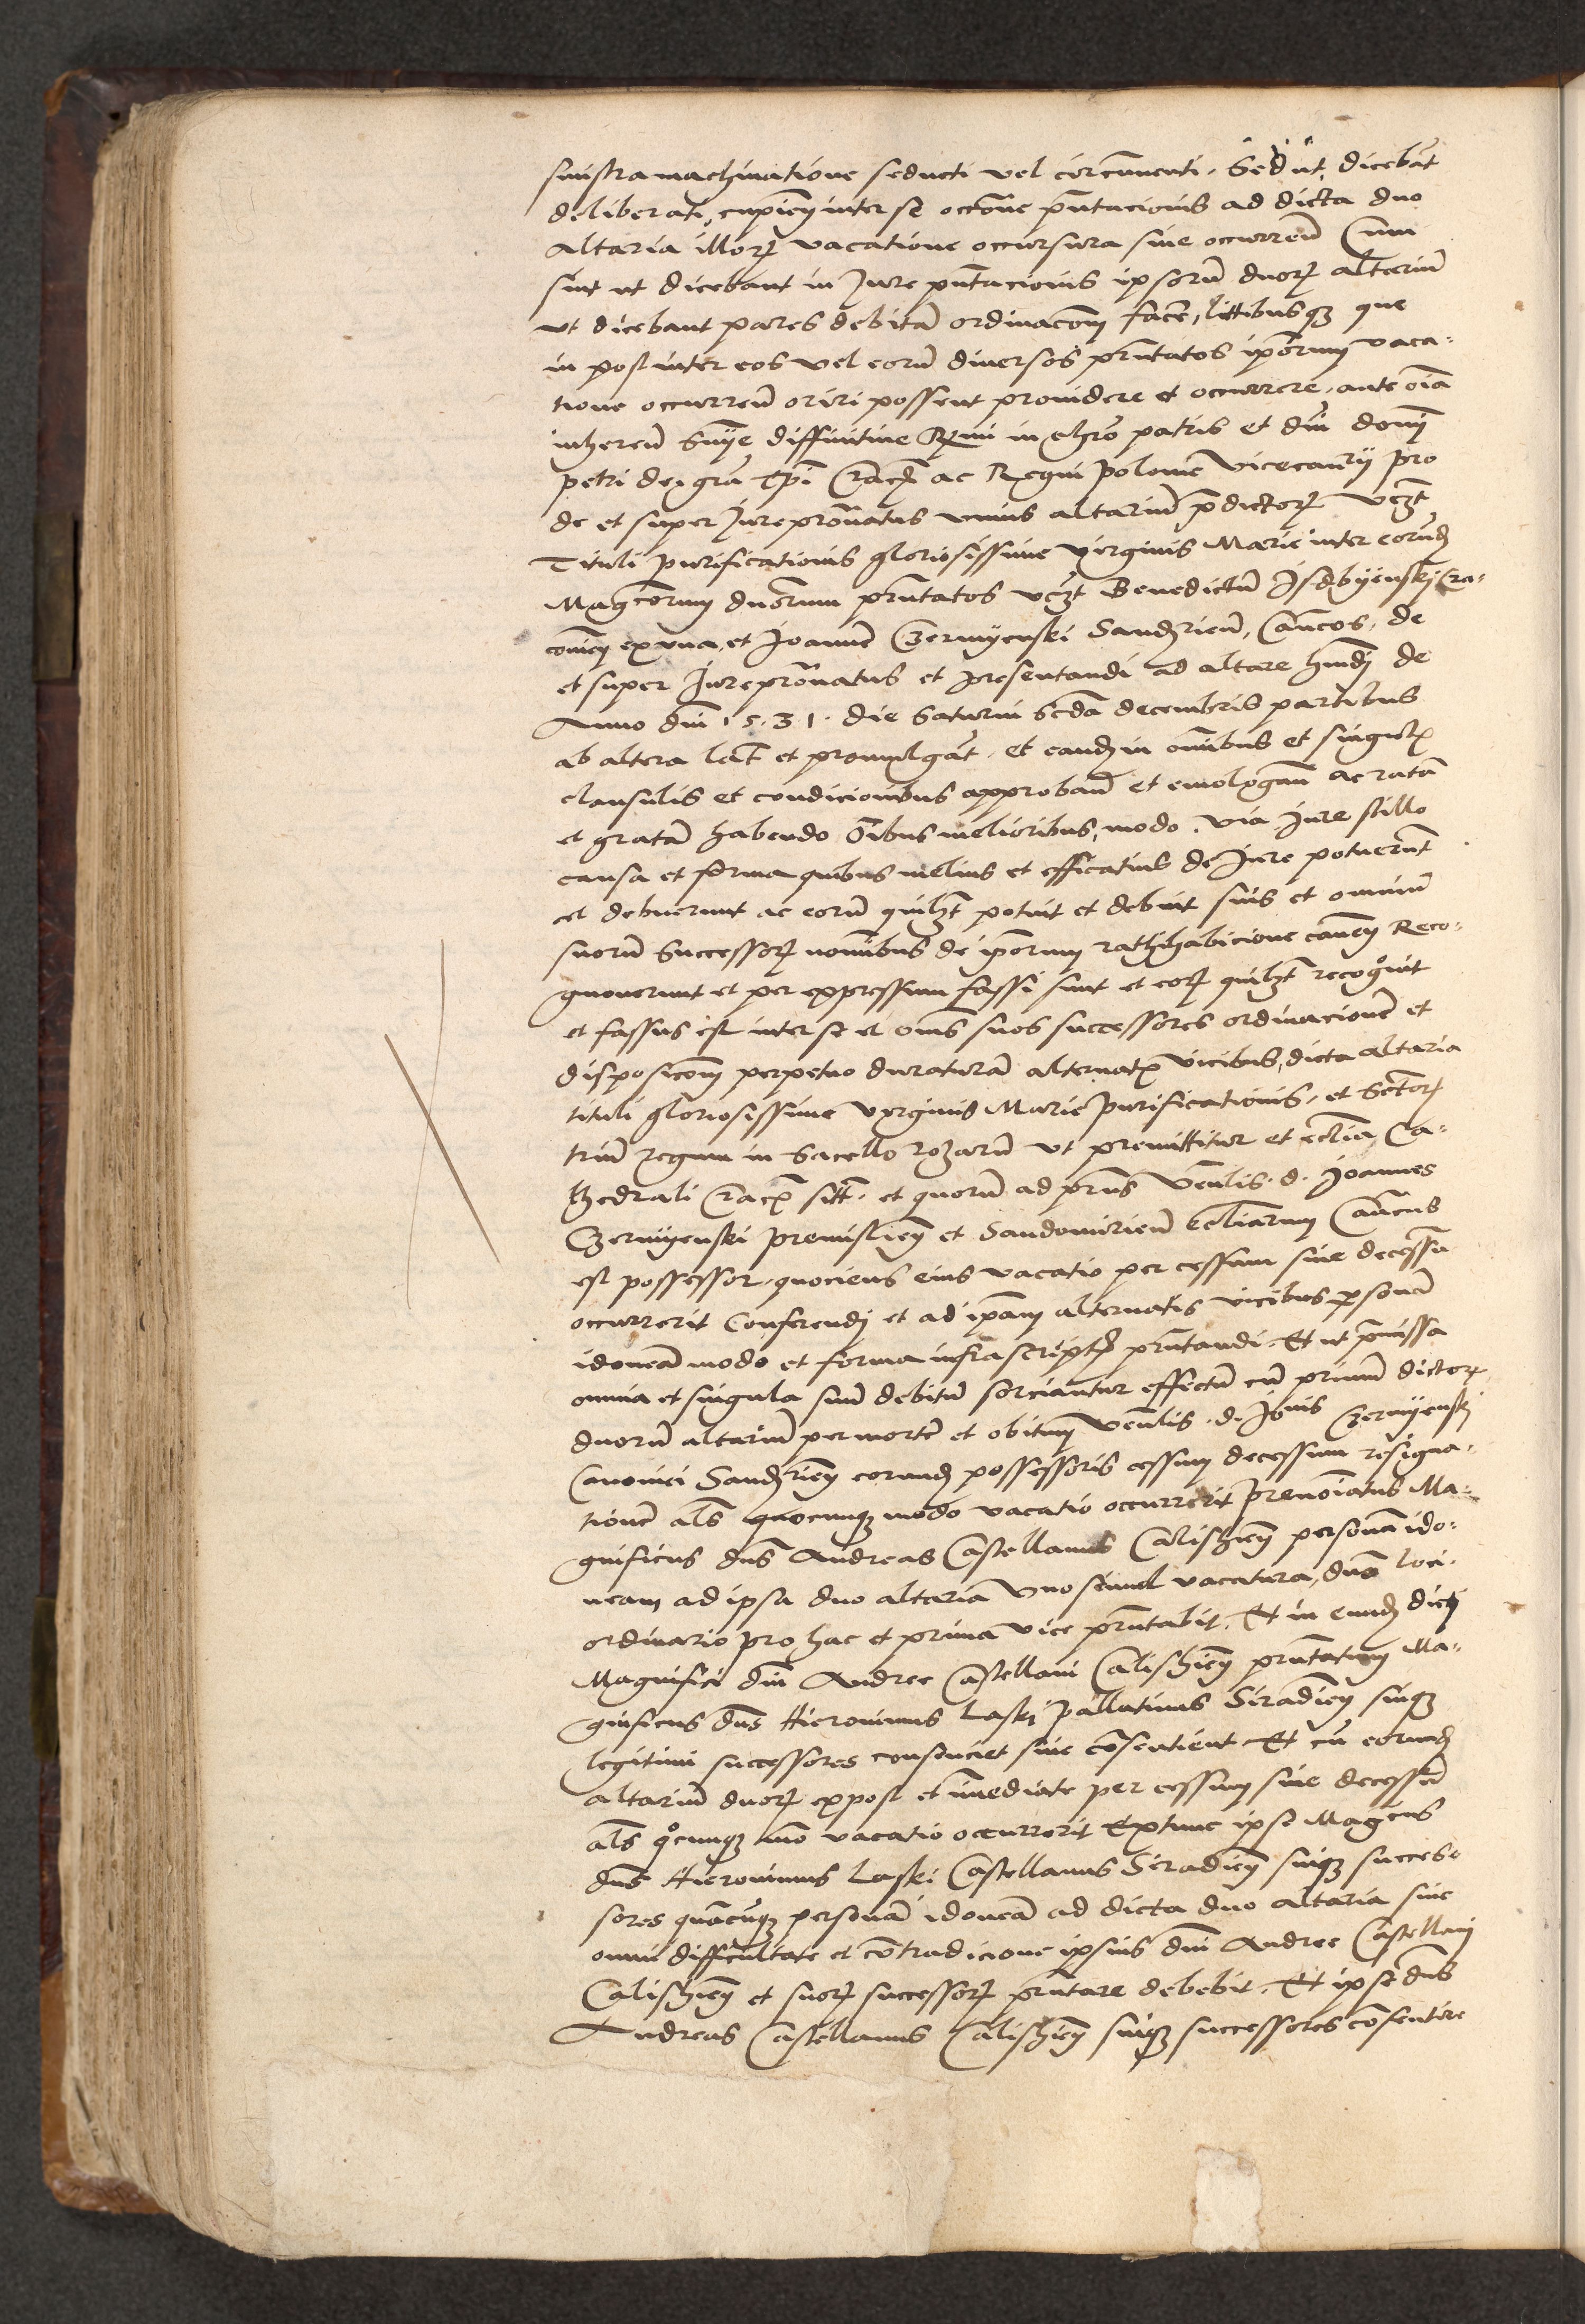 sinistra machinatione seducti vel circumventi. Sed ut dicebāt
deliberati, cupieñ inter se occōne pñtacionis ad dicta duo
Altaria illoꝝ vacatione occursura sive occurreñ Cum
sint ut dicebant in Jure pñtacionis ipsorū duoꝝ altariū
ut dicebant pares debitā ordinacōem facē, littibusqꝫ que
in post inter eos vel eorū diversos pñtatos ip̄orum vaca-
tione occurreñ oriri possent providere et occurrere, ante oīa
inhereñ Snīe diffinitive Rmi in chrō patris et dnī domī
petri dei grā Epī Cracoꝝ ac Regni polonie Vicecancrij pro
de et super Jureprōnatus unius altariū p̄dictoꝝ vczt
Tituli purificationis gloriosissime virginis Marie inter eorūdē
Magcorum dnorum pñtatos vczt Benedictū Isdbyenski Cra-
covieñ ex una, et Joannē Czermyenski Sandzrieñ, Cancos, de
et super Jureprōnatus et presentandi ad altare hmōdi de
Anno dnī 1531. die Saturni scda decembris partibus
ab altera lat̄ et promulgat̄. et eandē in omnibus et singulꝭ
clausulis et condicionibus approbañ et emologañ ac ratā
et gratā habendo Oībus melioribus, modo, via, Jure stillo
causa et forma quibus melius et efficatius de Jure potuerūt
et debuerunt ac eorū quilꝫt potuit et debuit suis et omniū
suorū Successoꝝ nomībus de ip̄orum rathihabicione caveñ Reco-
gnoverunt et per expressum fassi sunt et eoꝝ quilꝫt recogvit
et fassus est inter se et omēs suos successores ordinacionē et
disposicōem perpetuo duraturā alternatꝭ vicibus, dicta altaria
tituli gloriosissime virginis Marie purificationis, et Sctoꝝ
triū regum in Sacello rozarū ut premittitur et eclīa Ca-
thedrali Cracoꝝ sitꝭ. et quorū ad prñs Venlis. d. Joannes
Czermyenski premislieñ et Sandomirieñ Ecliarum Cancus
est possessor, quociens eius vacatio per cessum sive decessū
occurrerit Conferendi et ad ip̄am alternatis vicibus p̄sonā
idoneā modo et forma infrascriptꝭ pñtandi. Et ut p̄missa
omnia et singula suū debitū sorciantur effectū cū primū dictoꝝ
duorū altariū per mortē et obitum Venlis. d. Joīs Czermyenskj
Canonici Sandzrieñ eorundē possessoris cessum decessum resigna-
tionē als quocunqꝫ modo vacatio occurrerit prenoīatus Ma-
gnificus dns Andreas Castellanus Calisszieñ personā ido-
neam ad ipsa duo altaria Uno simul vacatura, dno loci
ordinario pro hac et prima vice pñtabit. Et in eundē dictj
Magnifici dni Andree Castellani Calisszieñ pñtatum Ma-
gnificus dns Hieronimus Laskj pallatinus Siradieñ suiqꝫ
legitimi successores consenciet sive cōsentient. Et cū eorundē
altariū duoꝝ expost et immediate per cessum sive decessū
als qocunqꝫ mō vacatio occurrerit Extunc ipse Magcus
dns Hieronimus Laski Castellanus Siradieñ suiqꝫ succes-
sores quācūqꝫ personā idoneā ad dicta duo altaria sine
omni difficultate et cōtradicione ipsius dni Andree Castellani
Calisszieñ et suoꝝ successoꝝ pñtare debebit. Et ipse dns
Andreas Castellanus Calisszieñ suiqꝫ successores cōsentire